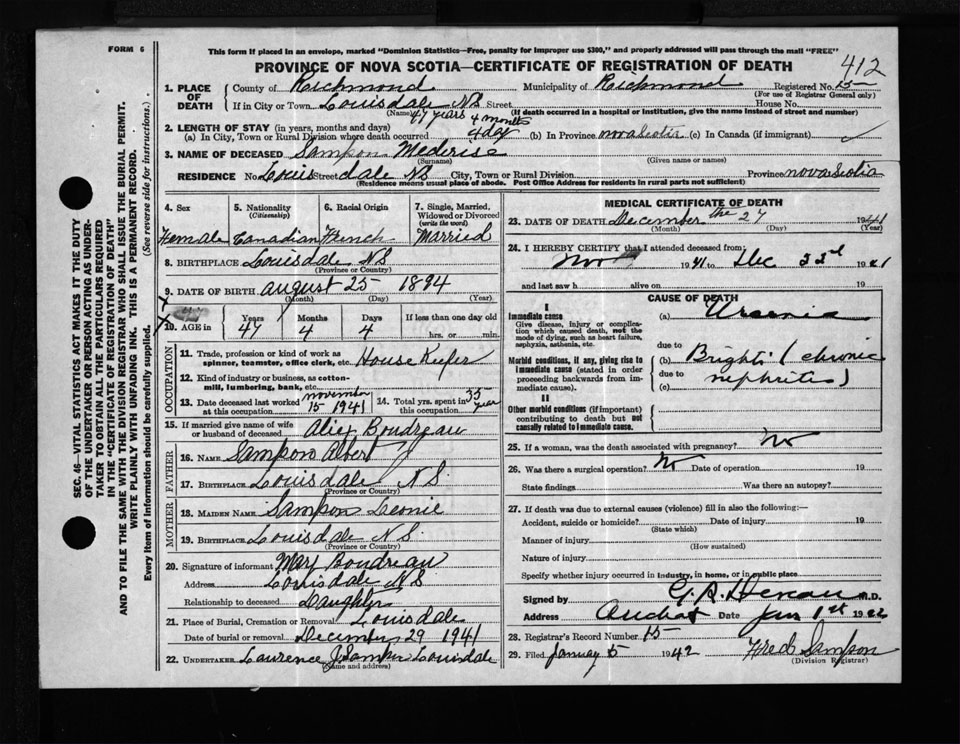 FORM 6
This form if placed in an envelope, marked "Dominion Statistics—Free, penalty for improper use $300," and properly addressed will pass through the mail "FREE"
412
PROVINCE OF NOVA SCOTIA—CERTIFICATE OF REGISTRATION OF DEATH
1. PLACE OF DEATH
County of Richmond Municipality of Richmond Registered No. 15
(For use of Registrar General only)
If in City or Town Louisdale NS Street House No.
(Name) (If death occurred in a hospital or institution, give the name instead of street and number)
47 years 4 months
2. LENGTH OF STAY (in years, months and days)
(a) In City, Town or Rural Division where death occurred 4 day (b) In Province nova Scotia (c) In Canada (if immigrant)
3. NAME OF DECEASED Sampson Mederise
(Surname) (Given name or names)
RESIDENCE No. Louis Street dale NS City, Town or Rural Division Province nova Scotia
(Residence means usual place of abode. Post Office Address for residents in rural parts not sufficient)
4. Sex
Female
5. Nationality (Citizenship)
Canadian
6. Racial Origin
French
7. Single, Married, Widowed or Divorced (write the word)
Married
8. BIRTHPLACE Louisdale NS
(Province or Country)
9. DATE OF BIRTH august 25 1894
(Month) (Day) (Year)
10. AGE in
Years Months Days If less than one day old
47 4 4 hrs. or min.
OCCUPATION
11. Trade, profession or kind of work as spinner, teamster, office clerk, etc. House Keefer
12. Kind of industry or business, as cotton-mill, lumbering, bank, etc.
13. Date deceased last worked at this occupation november 15-1941
14. Total yrs. spent in this occupation 35 year
15. If married give name of wife or husband of deceased Aliex Boudreau
FATHER
16. NAME Sampson Albert
17. BIRTHPLACE Louisdale N S.
(Province or Country)
MOTHER
18. MAIDEN NAME Sampson Leonie
19. BIRTHPLACE Louisdale N S.
(Province or Country)
20. Signature of informant Mary Boudreau
Address Louisdale N S
Relationship to deceased Daughter
21. Place of Burial, Cremation or Removal Louisdale
Date of burial or removal December 29 1941
22. UNDERTAKER Laurence J Sampson Louisdale
(Name and address)
MEDICAL CERTIFICATE OF DEATH
23. DATE OF DEATH December the 27 1941
(Month) (Day) (Year)
24. I HEREBY CERTIFY that I attended deceased from:
Nov 1941 to Dec 1941
and last saw h alive on 19
CAUSE OF DEATH
I
Immediate cause
Give disease, injury or complication which caused death, not the mode of dying, such as heart failure, asphyxia, asthenia, etc.
(a) Uraemia
due to
Morbid conditions, if any, giving rise to immediate cause (stated in order proceeding backwards from immediate cause).
(b) Bright's (chronic
due to
(c) nephrites)
II
Other morbid conditions (if important) contributing to death but not causally related to immediate cause.
25. If a woman, was the death associated with pregnancy? No
26. Was there a surgical operation? No Date of operation 19
State findings Was there an autopsy?
27. If death was due to external causes (violence) fill in also the following:—
Accident, suicide or homicide? Date of injury 19
(State which)
Manner of injury
(How sustained)
Nature of injury
Specify whether injury occurred in industry, in home, or in public place
Signed by M.D.
Address Arichat Date Jan 1st 1942
28. Registrar's Record Number 15
29. Filed January 5 1942 Fred Sampson
(Division Registrar)
SEC. 46—VITAL STATISTICS ACT MAKES IT THE DUTY
OF THE UNDERTAKER OR PERSON ACTING AS UNDER-
TAKER TO OBTAIN ALL THE PARTICULARS REQUIRED
IN THE "CERTIFICATE OF REGISTRATION OF DEATH"
AND TO FILE THE SAME WITH THE DIVISION REGISTRAR WHO SHALL ISSUE THE BURIAL PERMIT.
WRITE PLAINLY WITH UNFADING INK. THIS IS A PERMANENT RECORD.
Every item of information should be carefully supplied. (See reverse side for instructions.)